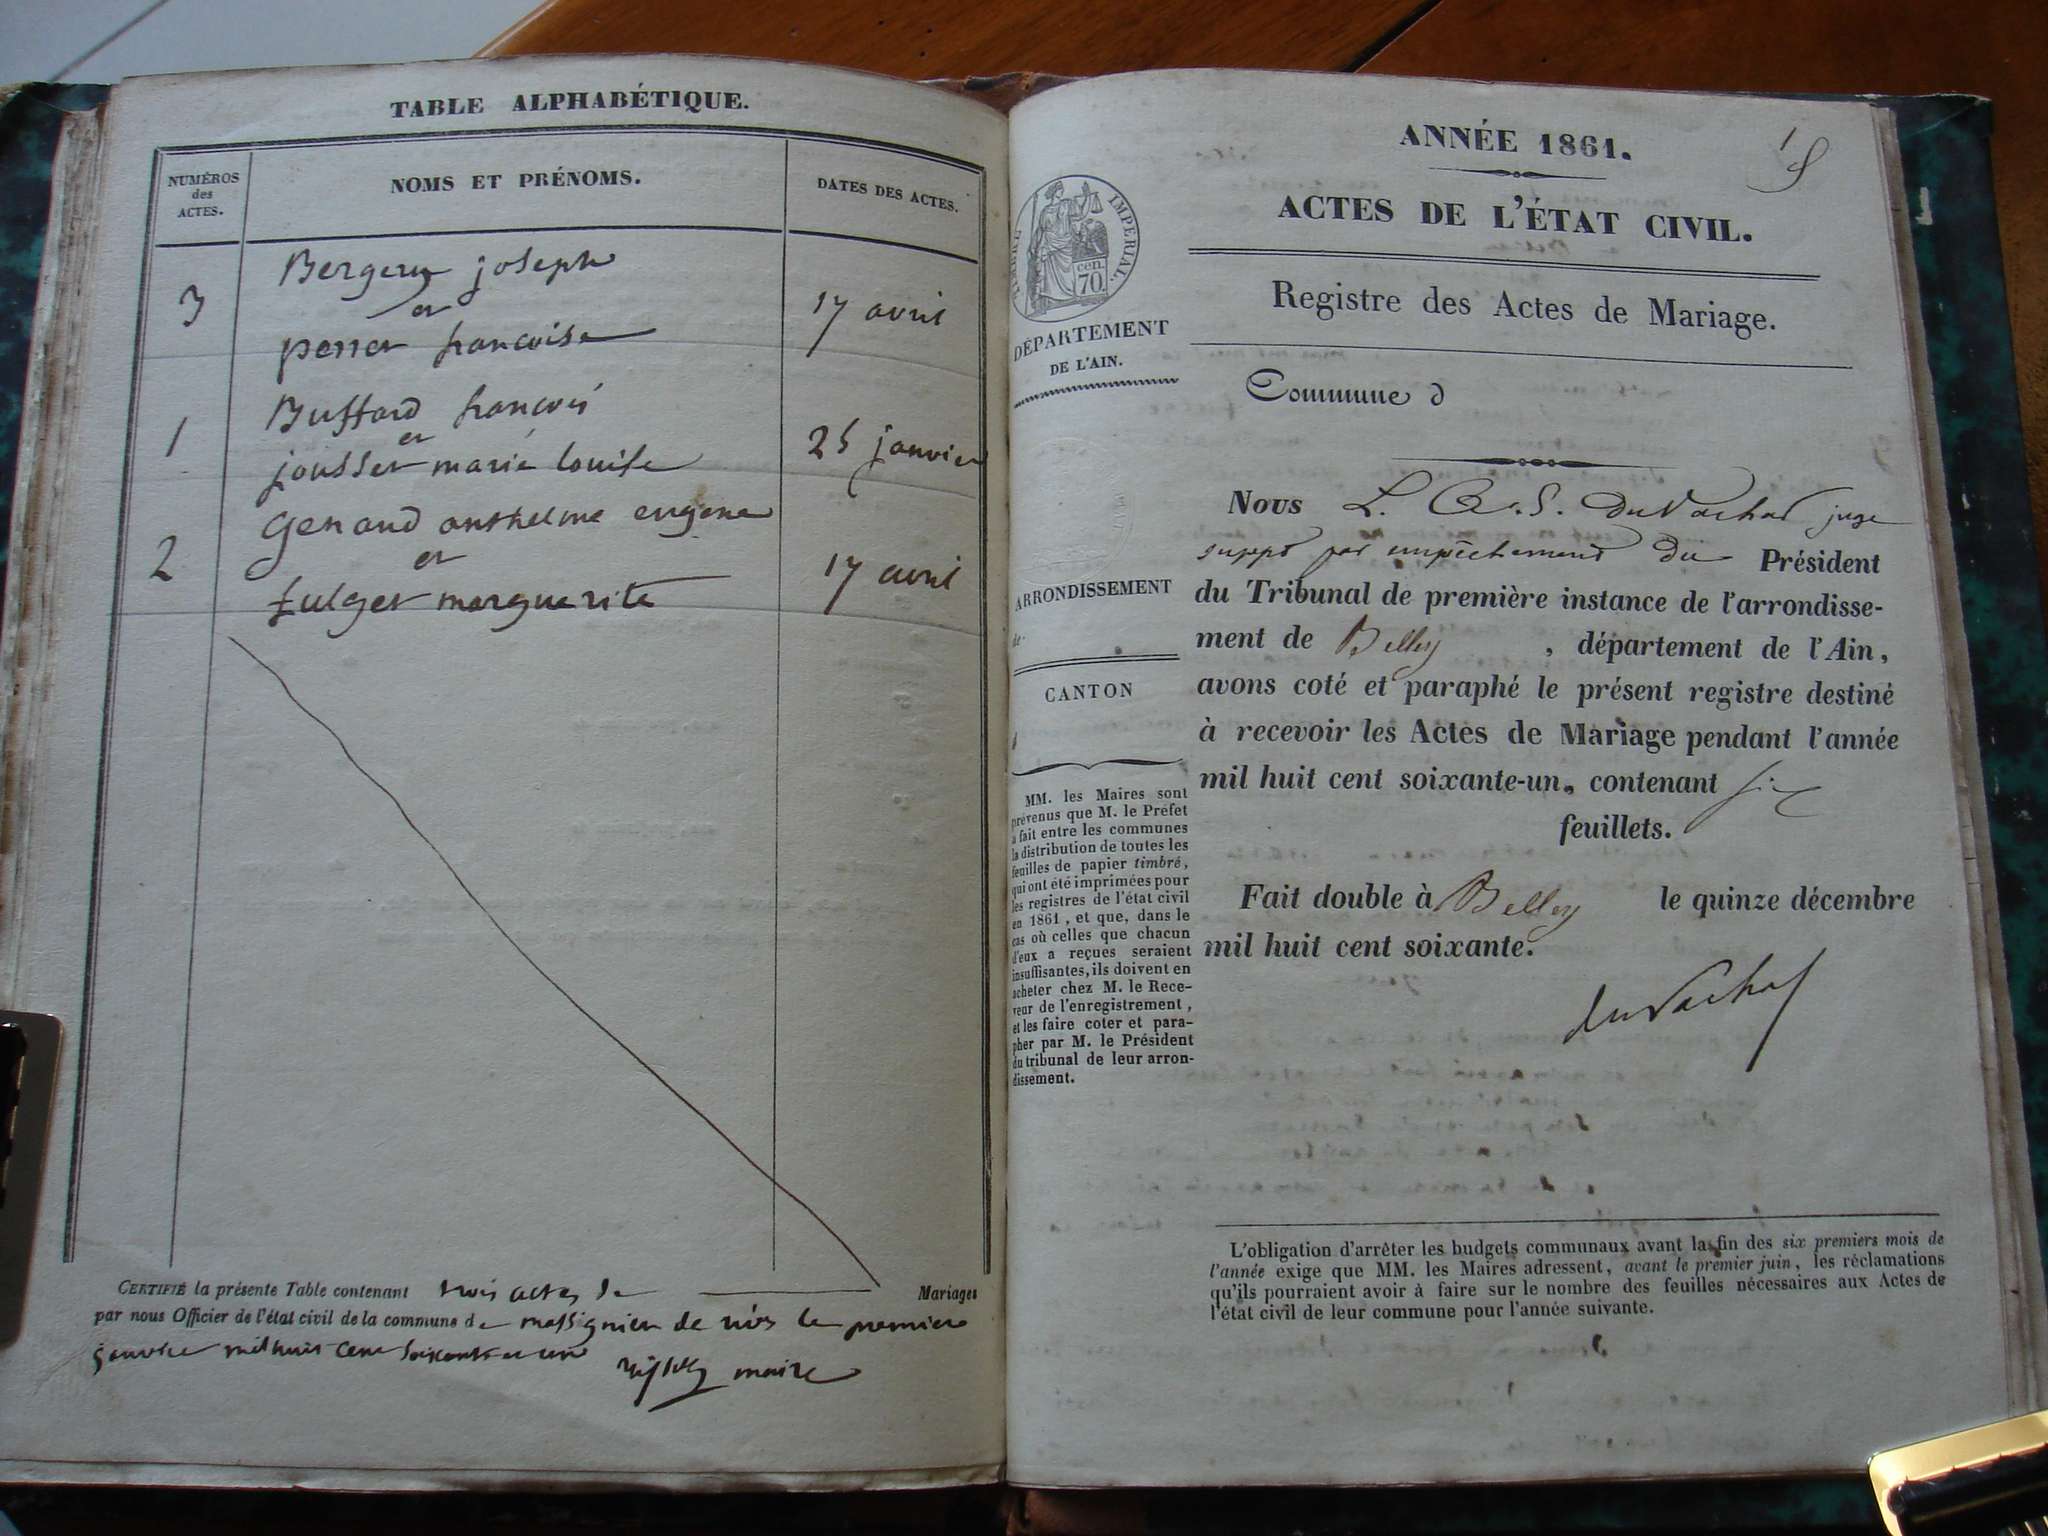 TABLE ALPHABÉTIQUE.
NUMÉROS
des
ACTES.
NOMS ET PRÉNOMS.
DATES DES ACTES.
3
joseph
et
perret francoise
17 avril
1
Buffard françois
et
jousset marie louise
25 janvier
2
Genand anthelme eugene
et
fulget marguerite
17 avril
CERTIFIÉ la présente Table contenant trois actes de Mariages
par nous Officier de l'état civil de la commune de massignieu de rives le premier
janvier mil huit cent soixante et un
maire
ANNÉE 1861.
ACTES DE L'ÉTAT CIVIL.
Registre des Actes de Mariage.
TIMBRE IMPÉRIAL.
cen.
70.
DÉPARTEMENT
DE L'AIN.
Commune d
ARRONDISSEMENT
de
CANTON
d
MM. les Maires sont
prévenus que M. le Préfet
a fait entre les communes
la distribution de toutes les
feuilles de papier timbré,
qui ont été imprimées pour
les registres de l'état civil
en 1861, et que, dans le
cas où celles que chacun
d'eux a reçues seraient
insuffisantes, ils doivent en
acheter chez M. le Rece-
veur de l'enregistrement,
et les faire coter et para-
pher par M. le Président
du tribunal de leur arron-
dissement.
Nous juge
suppt par empêchement du Président
du Tribunal de première instance de l'arrondisse-
ment de Belley , département de l'Ain,
avons coté et paraphé le présent registre destiné
à recevoir les Actes de Mariage pendant l'année
mil huit cent soixante-un, contenant six
feuillets.
Fait double à Belley le quinze décembre
mil huit cent soixante.
L'obligation d'arrêter les budgets communaux avant la fin des six premiers mois de
l'année exige que MM. les Maires adressent, avant le premier juin, les réclamations
qu'ils pourraient avoir à faire sur le nombre des feuilles nécessaires aux Actes de
l'état civil de leur commune pour l'année suivante.